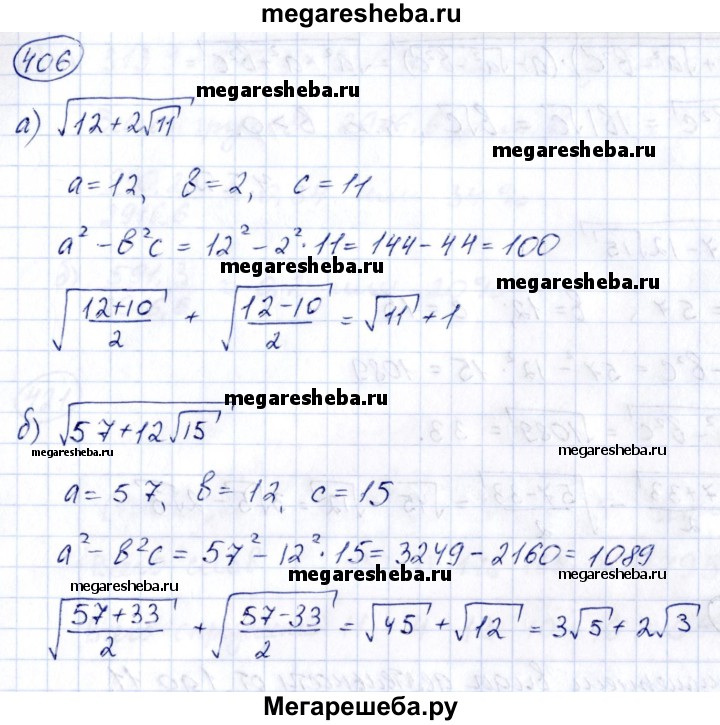 megaresheba.ru
406
megaresheba.ru
а) √(12+2√11)
megaresheba.ru
a=12, b=2, c=11
a²-b²c = 12²-2²·11 = 144-44 = 100
megaresheba.ru
√((12+10)/2) + √((12-10)/2) = √11 + 1
megaresheba.ru
б) √(57+12√15)
megaresheba.ru
megaresheba.ru
a=57, b=12, c=15
a²-b²c = 57²-12²·15 = 3249-2160 = 1089
megaresheba.ru
megaresheba.ru
megaresheba.ru
√((57+33)/2) + √((57-33)/2) = √45 + √12 = 3√5 + 2√3
Мегарешеба.ру